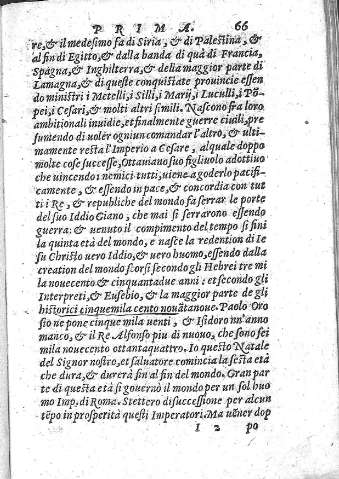 PRIMA. 66
re, & il medesimo fa di Siria, & di Palestina, &
al fin di Egitto, & dalla banda di quà di Francia,
Spagna, & Inghilterra, & della maggior parte di
Lamagna, & di queste conquistate prouincie essen
do ministri i Metelli, i Silli, i Marij, i Luculli, i Põ-
pei, i Cesari, & molti altri simili. Nascono fra loro
ambitionali inuidie, et finalmente guerre ciuili, pre
suntendo di uoler ogniun comandar l'altro, & ulti-
mamente resta l'Imperio a Cesare, al quale doppo
molte cose successe, Ottauiano suo figliuolo adottiuo
che uincendo i nemici tutti, uiene a goderlo pacifi-
camente, & essendo in pace, & concordia con tut
ti i Re, & republiche del mondo fa serrar le porte
del suo Iddio Giano, che mai si serrarono essendo
guerra: & uenuto il compimento del tempo si fini
la quinta età del mondo, e nasce la redention di Ie
su Christo uero Iddio, & uero huomo, essendo dalla
creation del mondo scorsi secondo gli Hebrei tre mi
la nouecento & cinquantadue anni: et secondo gli
Interpreti, & Eusebio, & la maggior parte de gli
historici cinquemila cento nouãtanoue. Paolo Oro
sio ne pone cinque mila uenti, & Isidoro un'anno
manco, & il Re Alfonso piu di nuouo, che sono sei
mila nouecento ottantaquattro. Io questo Natale
del Signor nostro, et saluatore comincia la sesta età
che dura, & durerà fin al fin del mondo. Gran par
te di questa età si gouernò il mondo per un sol huo
mo Imp. di Roma. Stettero di successione per alcun
tẽpo in prosperità questi Imperatori. Ma uẽner dop
I 2 po